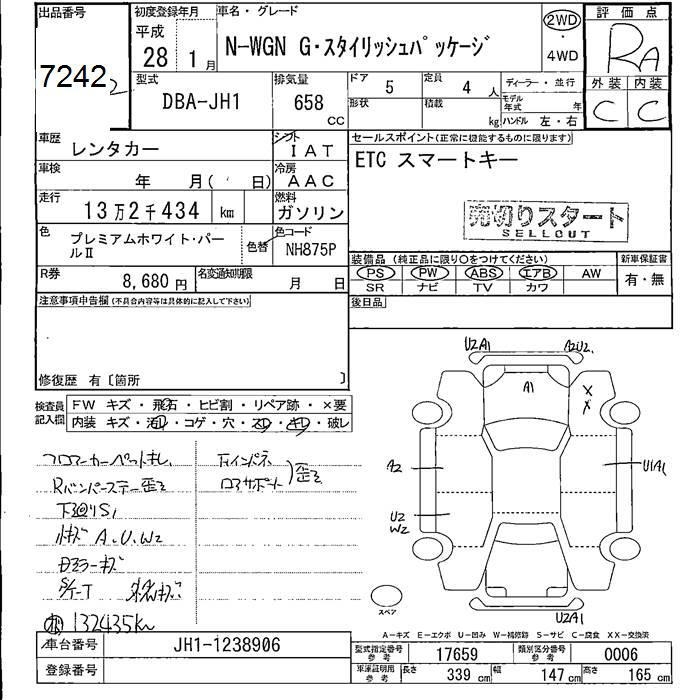 出品番号
7242
初度登録年月
平成
28 1月
車名・グレード
N-WGN G・スタイリッシュパッケージ
2WD
・
4WD
評価点
RA
外装 内装
C C
型式
DBA-JH1
排気量
658
CC
ドア 5
定員 4 人
ディーラー・並行
形状
積載 kg
モデル年式 年
ハンドル 左・右
車歴 レンタカー
シフト IAT
セールスポイント(正常に機能するものに限ります)
ETC スマートキー
車検 年 月( 日)
冷房 AAC
走行 13万2千434 km
燃料 ガソリン
売切りスタート
SELLOUT
色 プレミアムホワイト・パールⅡ
色替
色コード NH875P
装備品(純正品に限り○をつけてください)
新車保証書
PS PW ABS エアB AW
有・無
SR ナビ TV カワ
R券 8,680円
名変通知期限 月 日
後日品
注意事項申告欄(不具合内容等は具体的に記入して下さい)
修復歴 有〔箇所 〕
検査員記入欄
FW キズ・飛石・ヒビ割・リペア跡・×要
内装 キズ・汚れ・コゲ・穴・スレ・キレ・破レ
U2A1
A2U2.
A1
X
X
A2
U1A1
U2
W2
U2A1
スペア
フロアーカーペットキレ
Rバンパーステー歪ミ
下廻りS1
小キズ A.U.W2
Dミラーキズ
S/T-T
132435km
A-キズ E-エクボ U-凹み W-補修跡 S-サビ C-腐食 XX-交換済
車台番号 JH1-1238906
登録番号
型式指定番号 参考 17659
類別区分番号 参考 0006
車庫証明用 参考
長さ 339 cm
幅 147 cm
高さ 165 cm